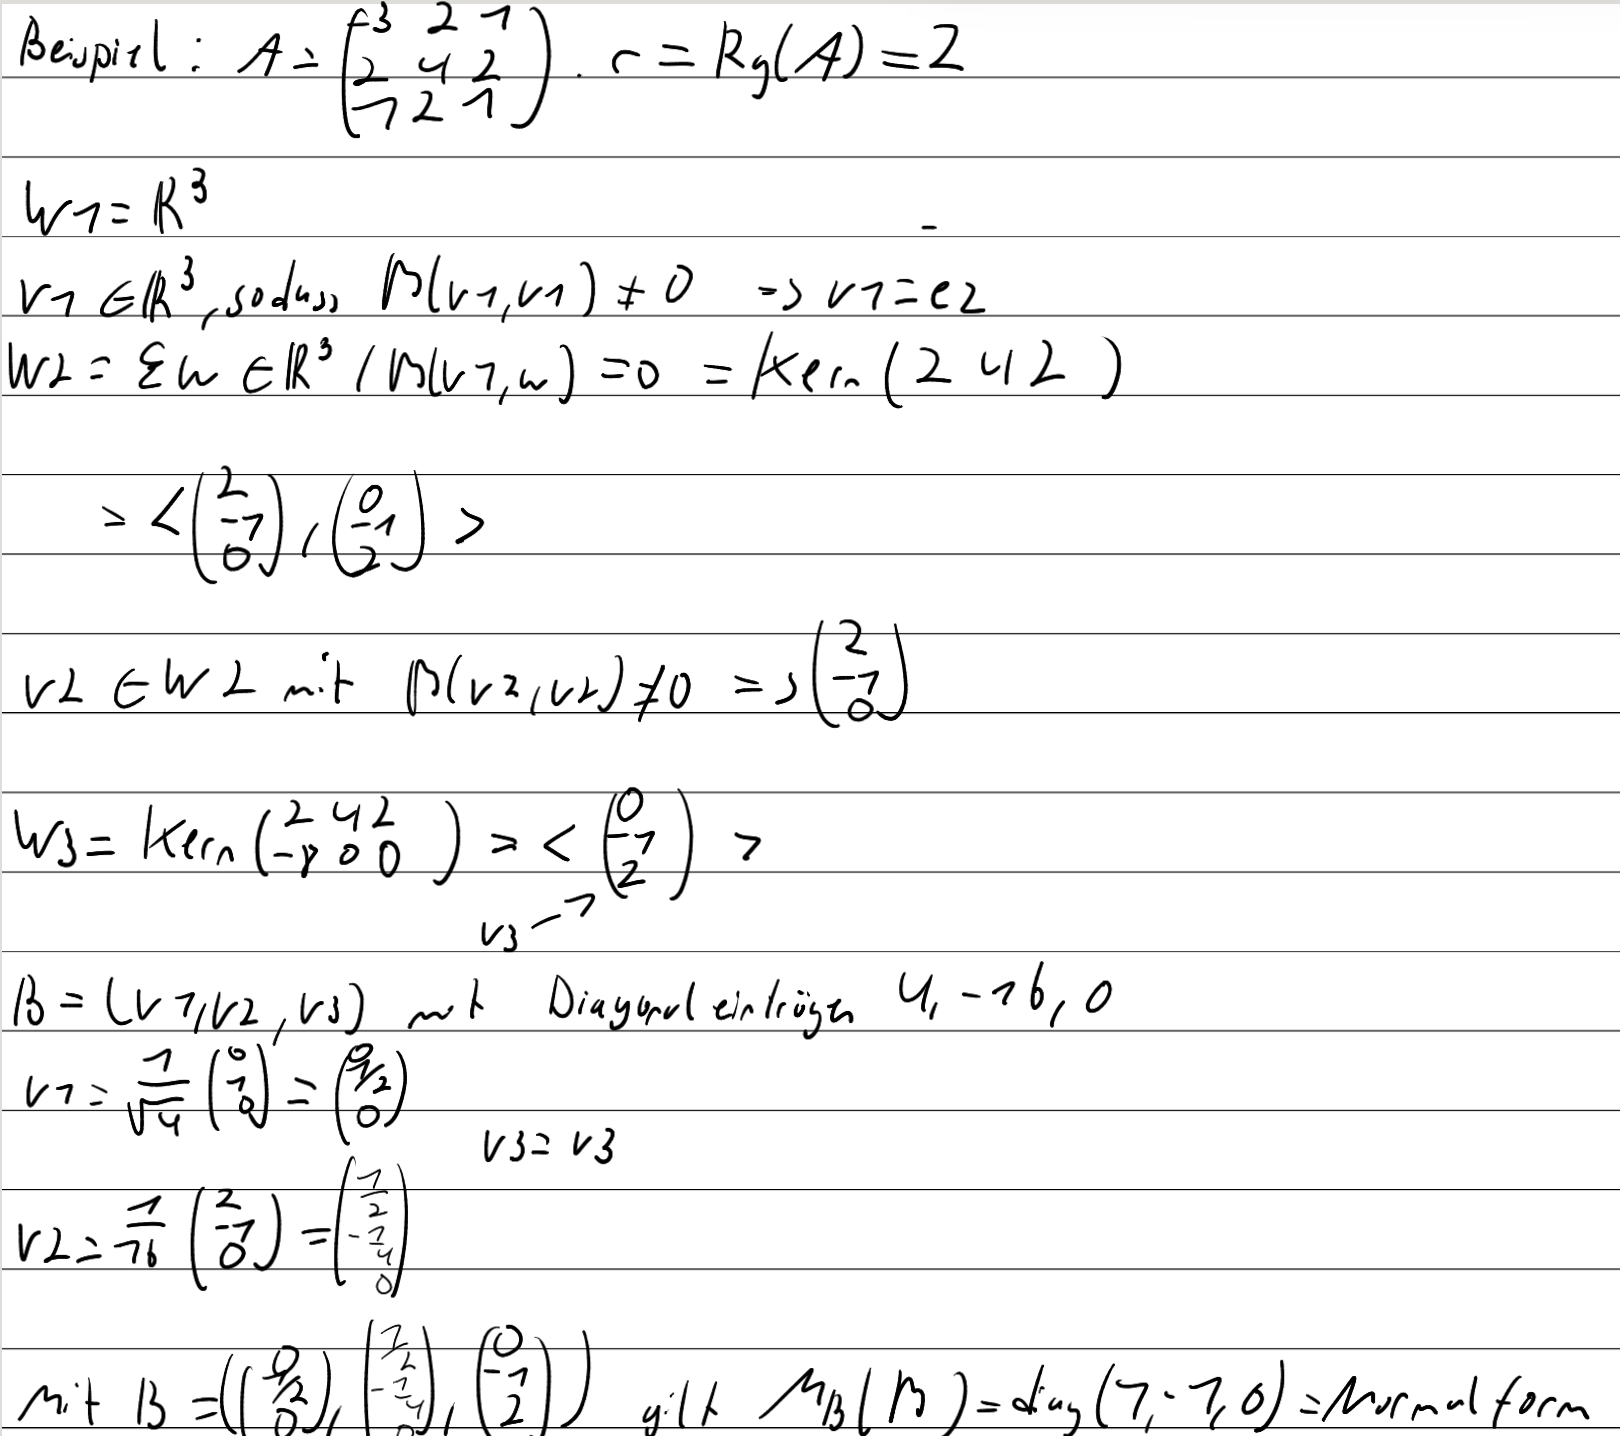 Beispiel: A = (-3 2 1
2 4 2
-1 2 1). r = Rg(A) = 2
W1 = ℝ³
v1 ∈ ℝ³, sodass β(v1,v1) ≠ 0 -> v1 = e2
W2 = {w ∈ ℝ³ / β(v1,w) = 0 = Kern(2 4 2)
= <(2 -1 0), (0 -1 2)>
v2 ∈ W2 mit β(v2,v2) ≠ 0 => (2 -1 0)
W3 = Kern(2 4 2
-8 0 0) = <(0 -1 2)>
v3 ->
B = (v1,v2,v3) mit Diagonaleinträgen 4, -16, 0
v1 = 1/√4 (0 1 0) = (0 1/2 0)
v3 = v3
v2 = 1/16 (2 -1 0) = (1/2 -1/4 0)
Mit B = ((0 1/2 0), (1/2 -1/4 0), (0 -1 2)) gilt MB(β) = diag(1,-1,0) = Normalform